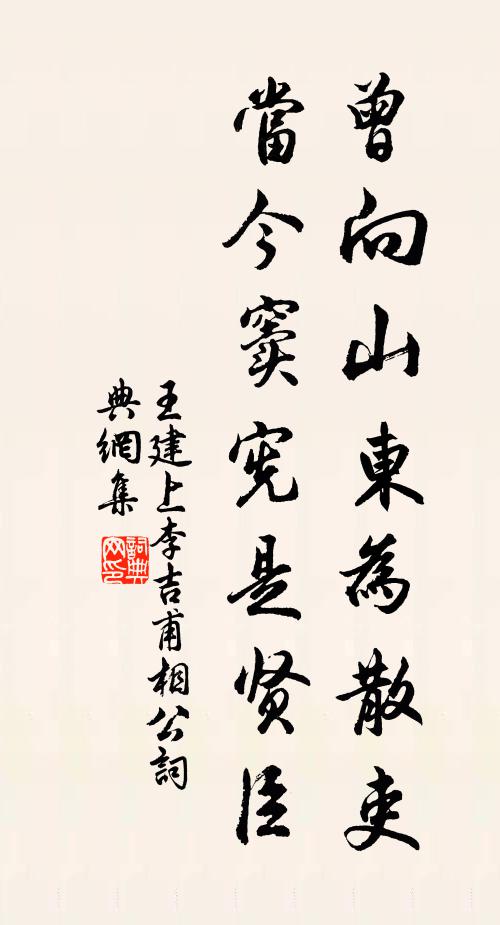 曾向山東為散吏
當今窦宪是贤臣
王建上李吉甫相公詞
典網集
詞典
网印